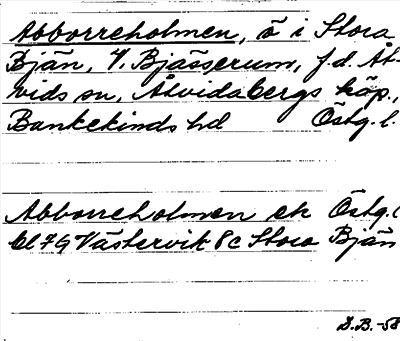 Abborreholmen, ö i Stora
Bjän, V. Bjässerum, f.d. Åt-
vids sn, Åtvidabergs köp.,
Bankekinds hd Östg. l.
Abborreholmen ek Östg. l
bl 79 Västervik 8c Stora Bjän
S.B. -58